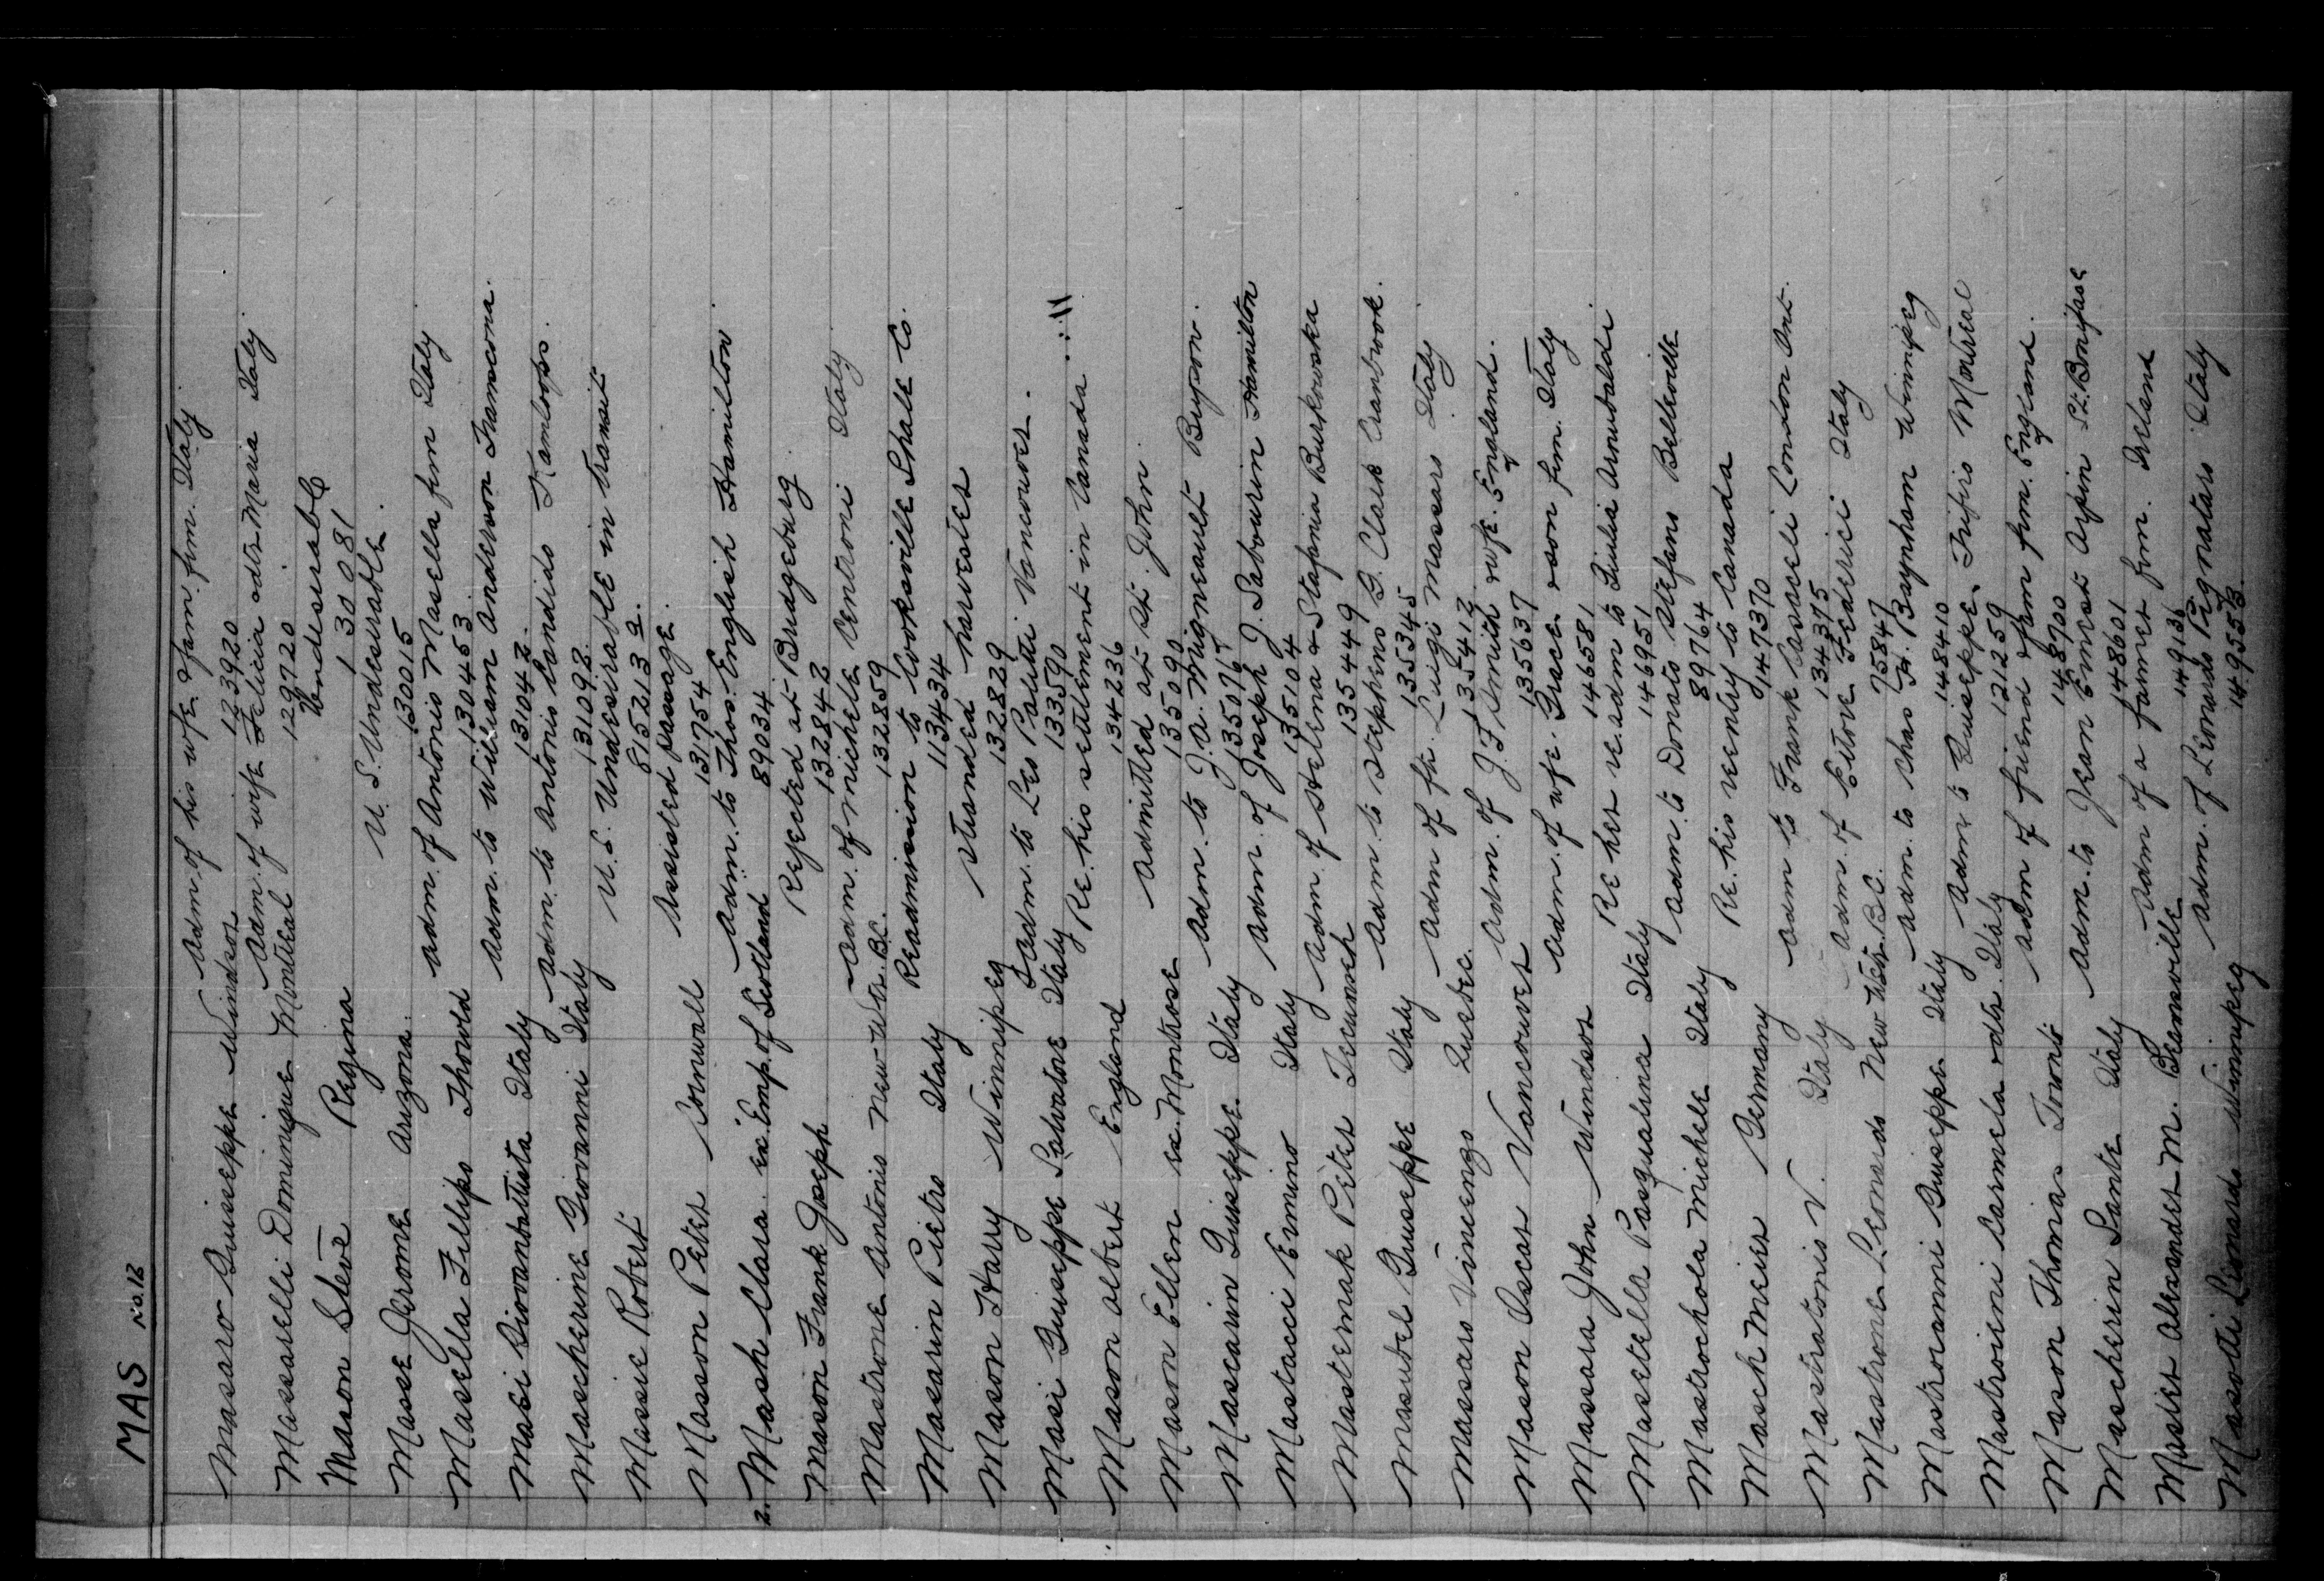 MAS No. 13
Massaro Guiseppe Windsor Adm. of his wfe & fam. frm. Italy 123920
Massarelli Dominique Montreal Adm. of wife Felicia & dtr Maria Italy 129720
Mason Steve Regina Undesirable 1 30 0 81
Masse Jerome Arizona. U.S. Undesirable. 130015
Masella Fillipo Thorold Adm. of Antonio Masella frm Italy 130453
Masci Giovanbattista Italy Adm. to William Anderson Transcona. 131042
Mascherine Giovanni Italy Adm. to Antonio Candido Kamloops. 131092
Massie Robert U.S. Undesirable in transit 615213
Masson Peter Cornwall Assisted passage. 131754
2. Mash Clara ex. Emp. of Scotland Adm. to Thos. English Hamilton 89034
Mason Frank Joseph Rejected at Bridgeburg 132842
Mastrone Antonio New Wtr. B.C. Adm. of Michele Centroni Italy 132859
Masarin Pietro Italy Readmission to Cooksville Shale Co. 113434
Mason Harry Winnipeg Stranded harvester 132829
Masi Guiseppe Salvatore Italy Adm. to Leo Palutti Vancouver. 133590
Mason Albert England Re. his settlement in Canada 134236
Mason Ellen ex. Montrose Admitted at St. John 135090
Mascarin Guiseppe Italy Adm. to J.A. Migneault Bupon. 135076
Mastacci Ermino Italy Adm. of Joseph J. Sabourin Hamilton 135104
Masternak Peter Tecumseh Adm. of Helena & Stefania Burkowska 135449
Masubel Guiseppe Italy Adm. to Stephens B. Clark Cranbrook. 135345
Massaro Vincenzo Quebec. Adm of fthr. Luigi Massaro Italy 135412
Mason Oscar Vancouver Adm. of J.F. Smith & wfe. England. 135637
Massara John Windsor Adm. of wfe. Grace & son frm. Italy 146581
Masetella Pasqualina Italy Re her re. adm to Giulia Arnubaldi 146951
Mastrochola Michele Italy Adm. to Donato Stefano Belleville 89764
Masch Meier Germany Re. his reentry to Canada 147370
Mastratonio V. Italy Adm to Frank Casaceli London Ont. 134375
Mastrome Leonardo New Wes. B.C. Adm. of Ettore Federici Italy 75847
Mastroianni Guiseppe Italy Adm. to Chas H. Baynham Winnipeg 148410
Mastroieni Carmela & dtr. Italy Adm to Guiseppe Trifiro Montreal 121259
Mason Thomas Toronto Adm of friend & fam frm. England. 148700
Mascherin Sante Italy Adm. to Jean Ernest Arpin St. Boniface 148601
Master Alexander M. Beamsville Adm of a farmer frm. Ireland 149136
Masotti Leonardo Winnipeg Adm. of Leonardo Pignataro Italy 149553